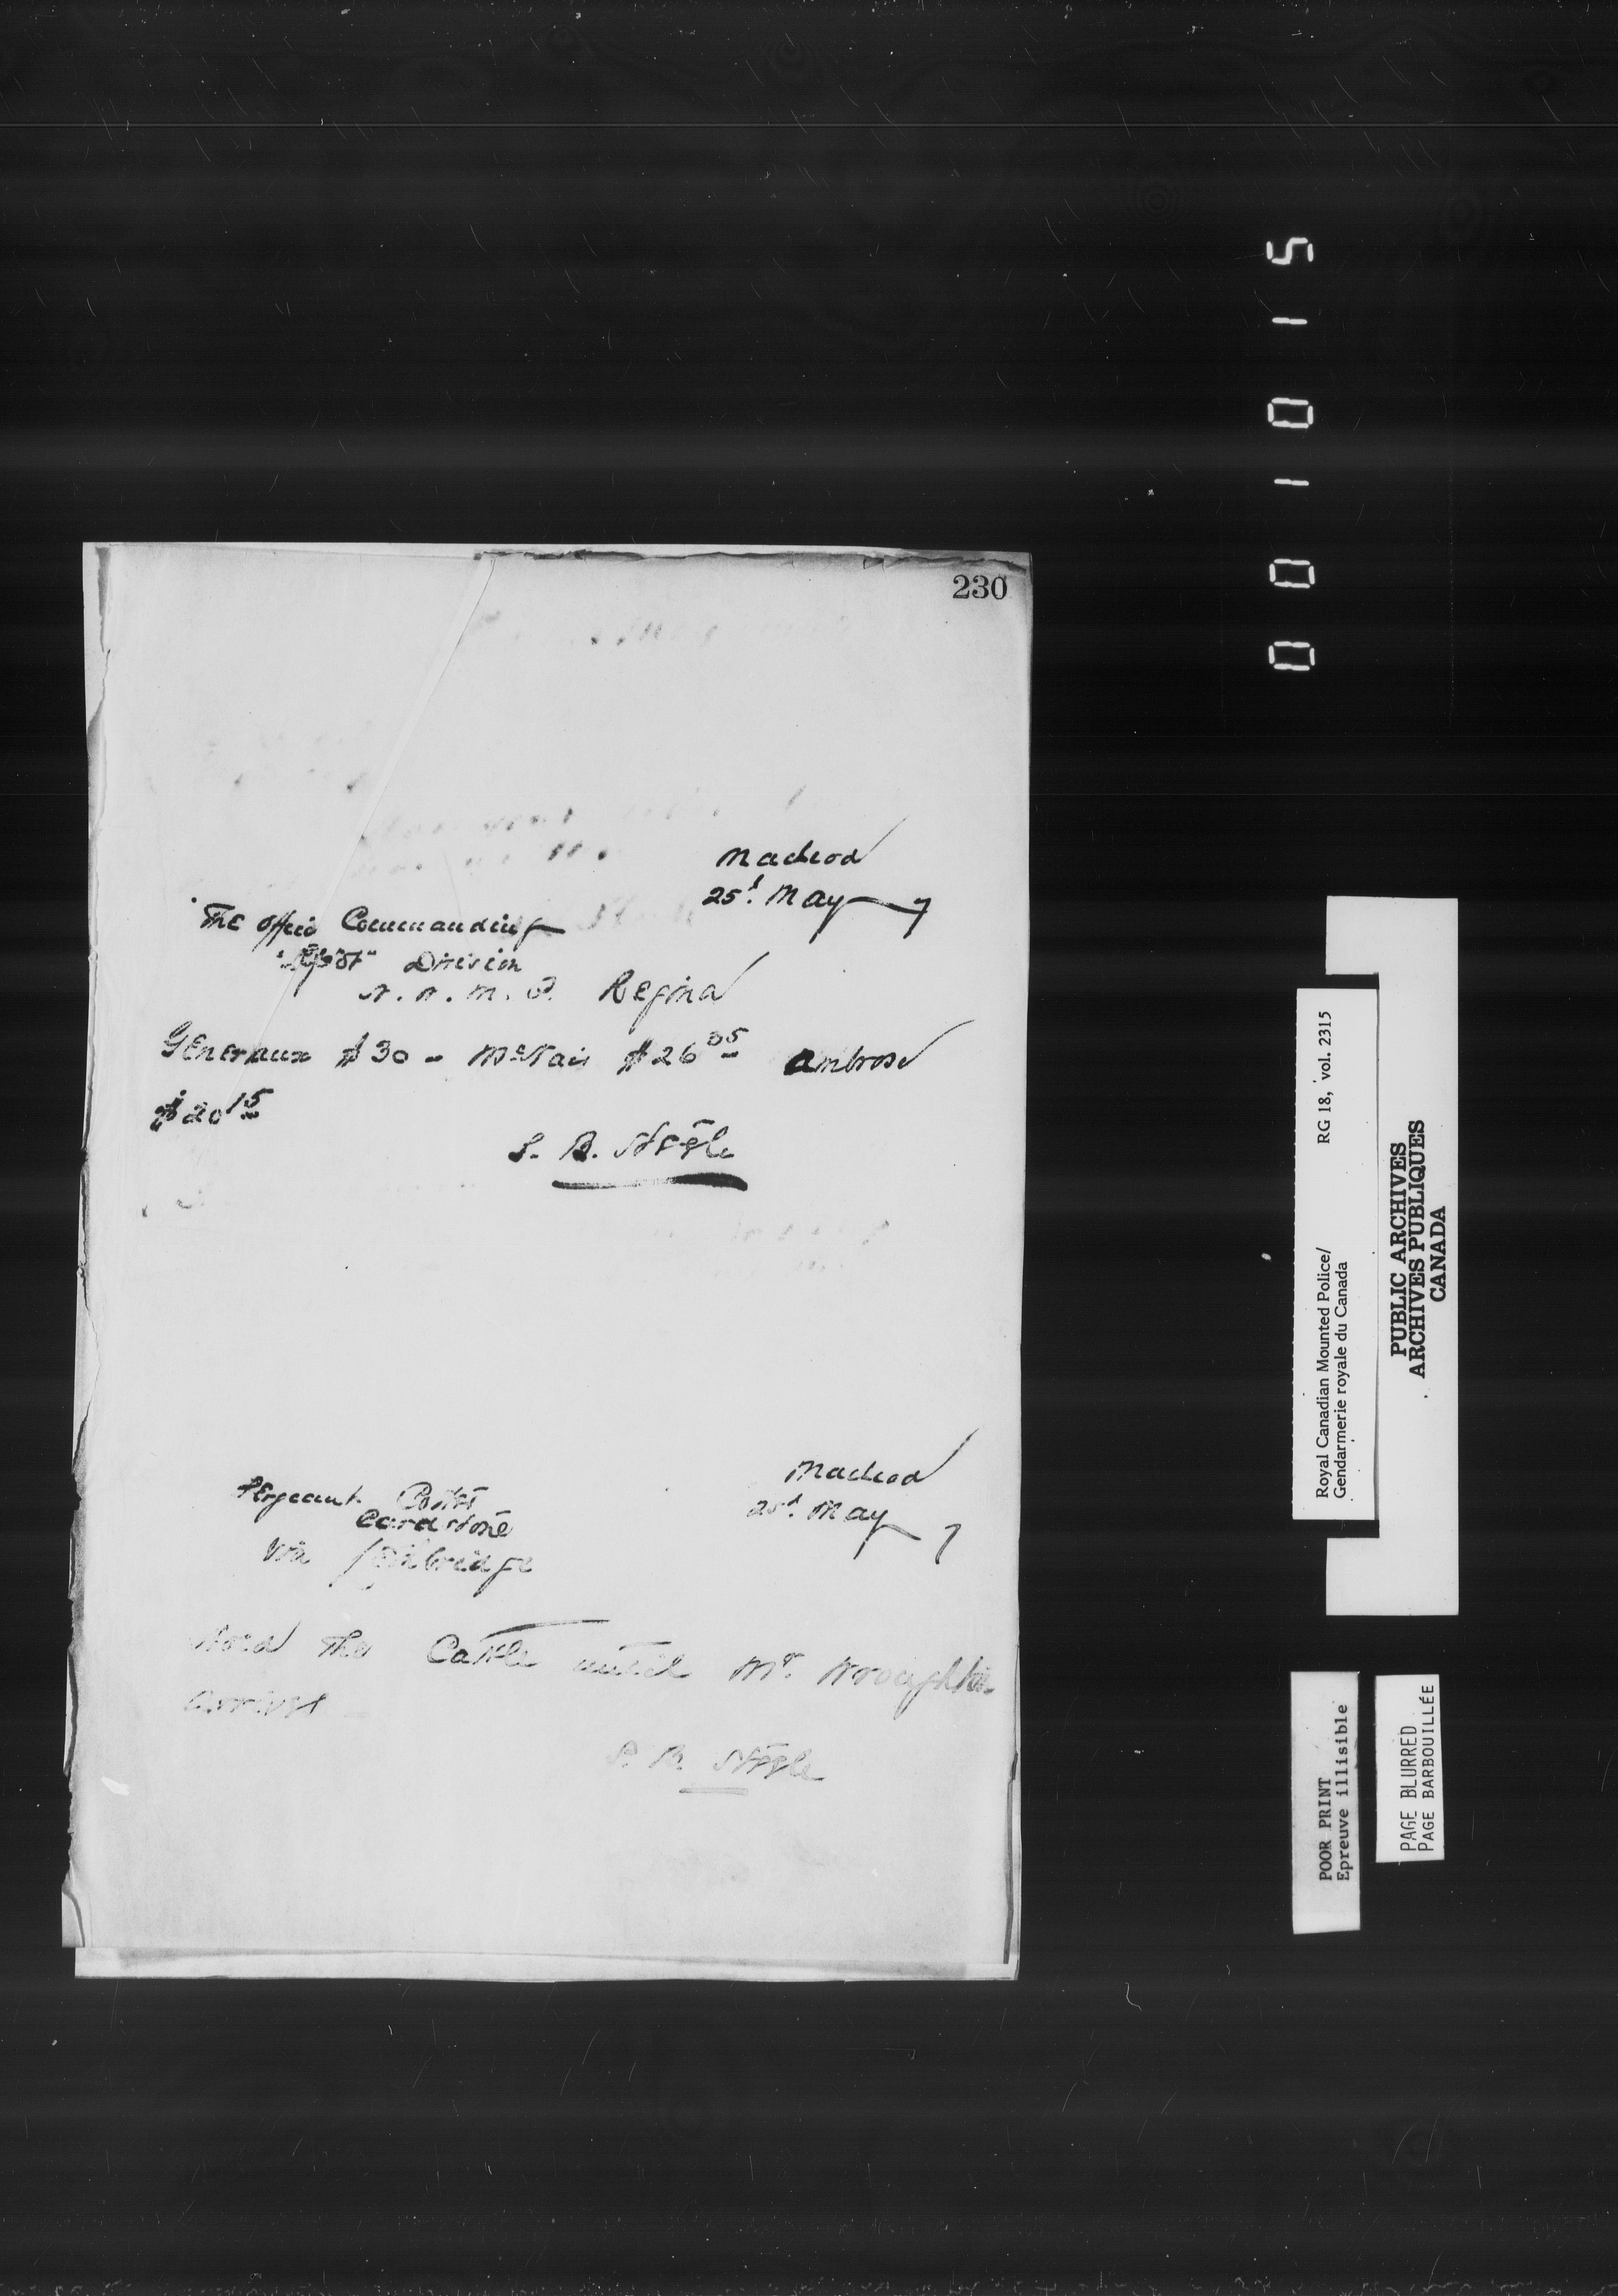 230
Macleod
25th May 7
The Office Commanding
"Depot" Division
N. W. M. P. Regina
Genereaux $30 - McNair $26 35 Ambrose
$20 15
S. B. Steele
Macleod
25th May 7
Sergeant
Cardstone
Via Lethbridge
Hold the Cattle until Mr. Wroughton
arrives
S. B. Steele
001015
Royal Canadian Mounted Police/ RG 18, vol. 2315
Gendarmerie royale du Canada
PUBLIC ARCHIVES
ARCHIVES PUBLIQUES
CANADA
POOR PRINT
Epreuve illisible
PAGE BLURRED
PAGE BARBOUILLÉE